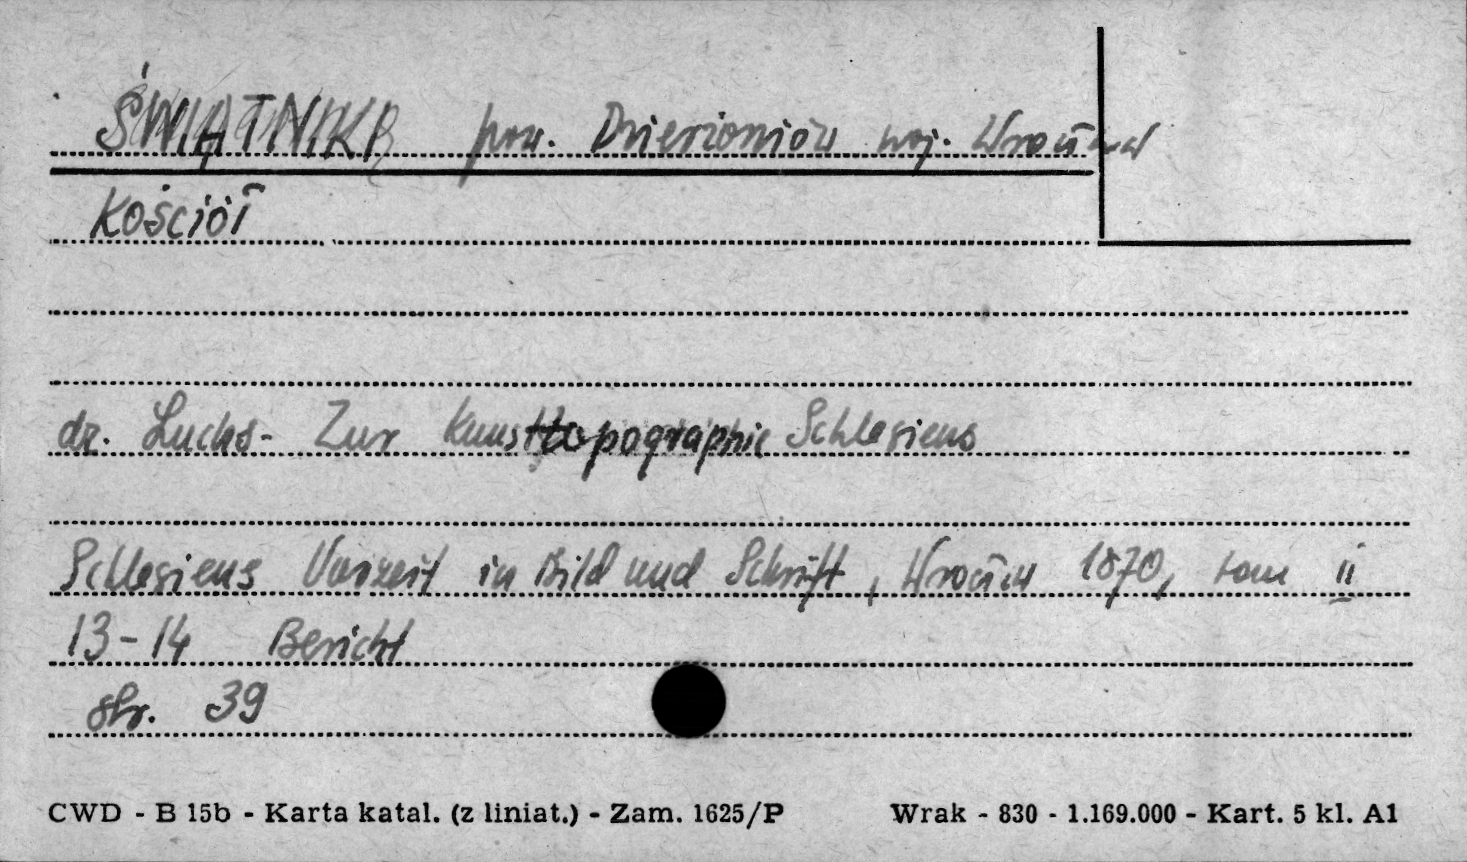 ŚWIĄTNIKI pow. Dzierżoniów woj. Wrocław
Kościół
dr. Luchs - Zur Kunsttopographie Schlesiens
Schlesiens Vorzeit in Bild und Schrift, Wrocław 1870, tom II
13-14 Bericht
str. 39
CWD - B 15b - Karta katal. (z liniat.) - Zam. 1625/P Wrak - 830 - 1.169.000 - Kart. 5 kl. A1